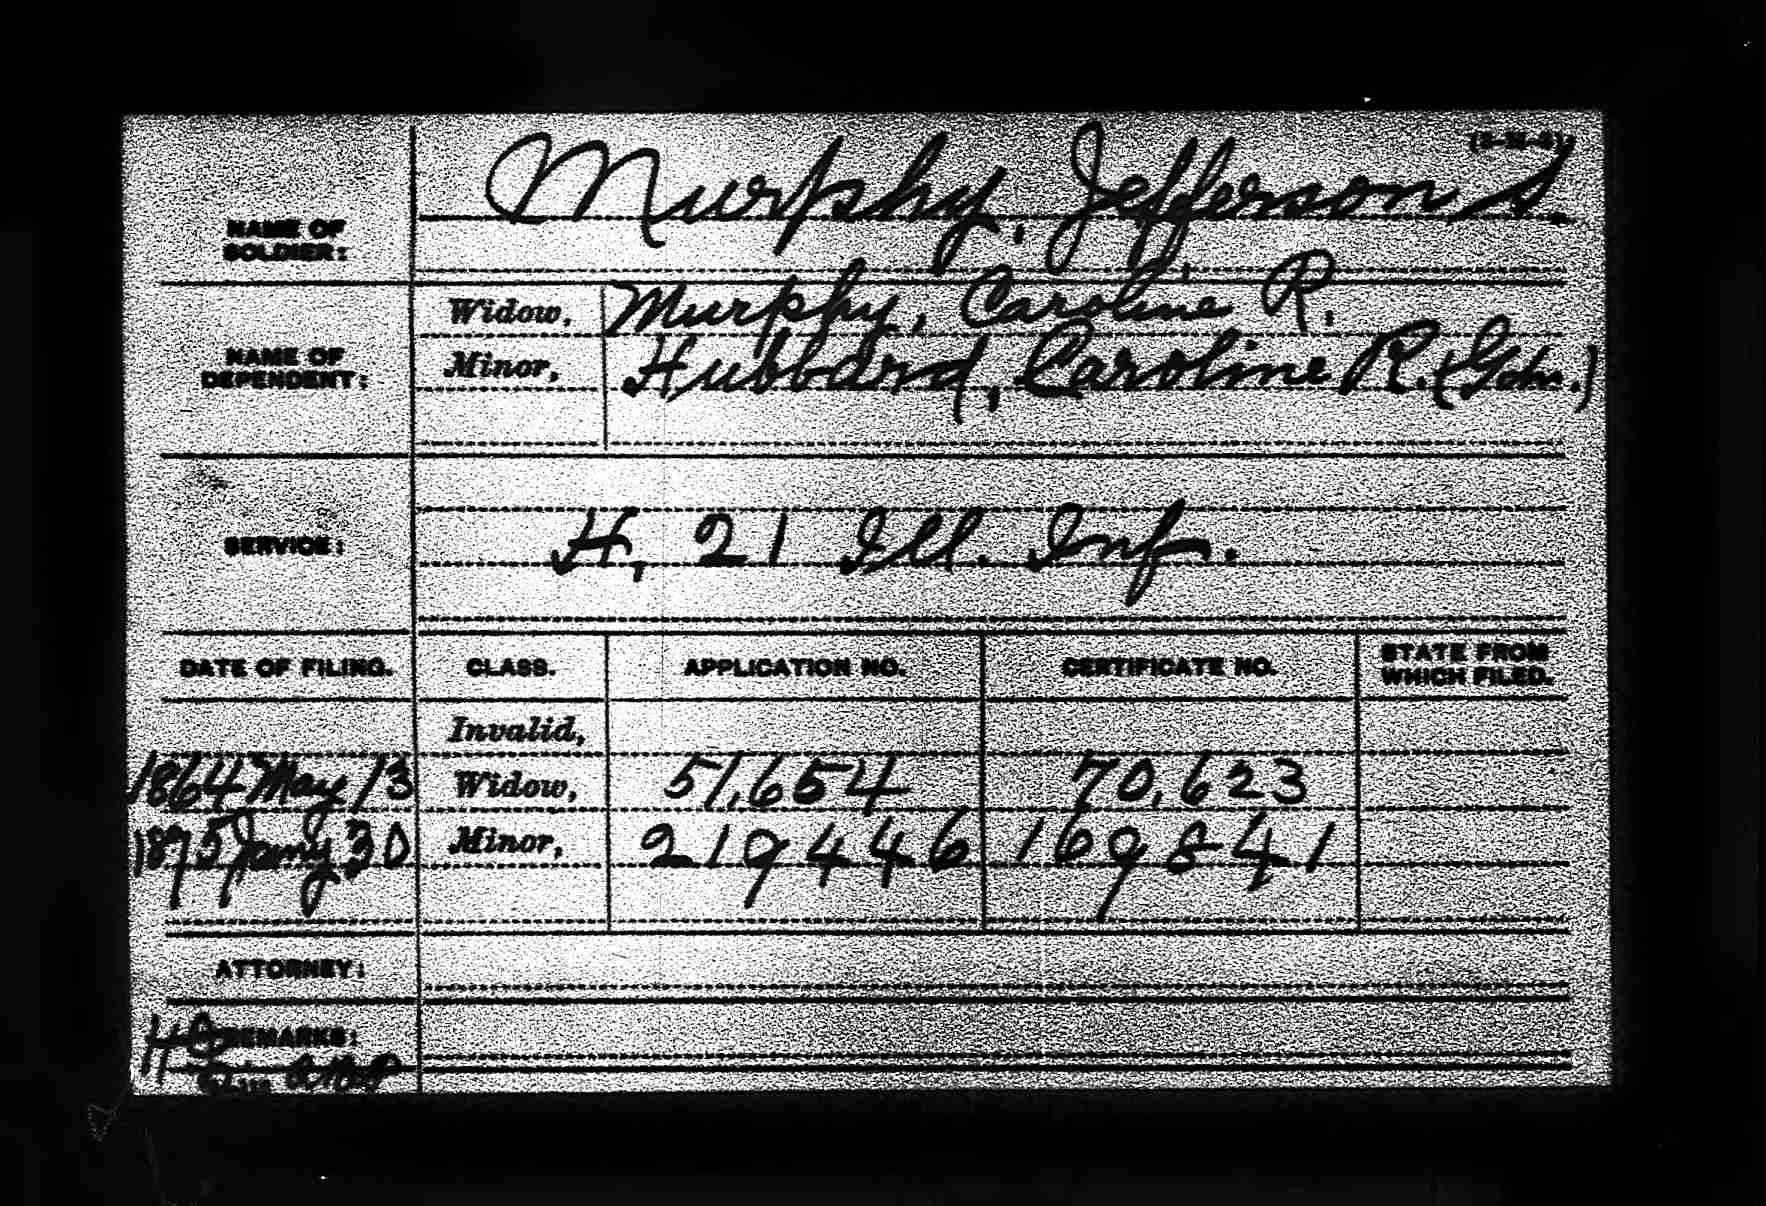 Murphy, Jefferson S.
NAME OF
SOLDIER:
Widow, Murphy, Caroline R.
NAME OF
DEPENDENT:
Minor, Hubbard, Caroline R. (Gdn.)
SERVICE: H, 21 Ill. Inf.
DATE OF FILING. CLASS. APPLICATION NO. CERTIFICATE NO. STATE FROM
WHICH FILED.
Invalid,
1864 May 13 Widow, 51,654 70,623
1875 Jany 30 Minor, 219446 169841
ATTORNEY:
REMARKS: